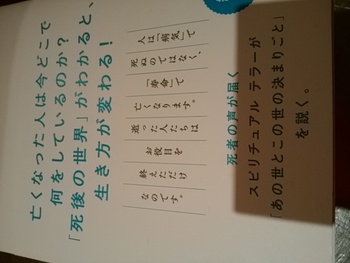 亡くなった人は今どこで
何をしているのか?
「死後の世界」がわかると、
生き方が変わる!
人は「病気」で
死ぬのではなく、
「寿命」で
亡くなります。
逝った人たちは
お役目を
終えただけ
なのです。
死者の声が届く
スピリチュアル テラーが
「あの世とこの世の決まりごと」
を説く。